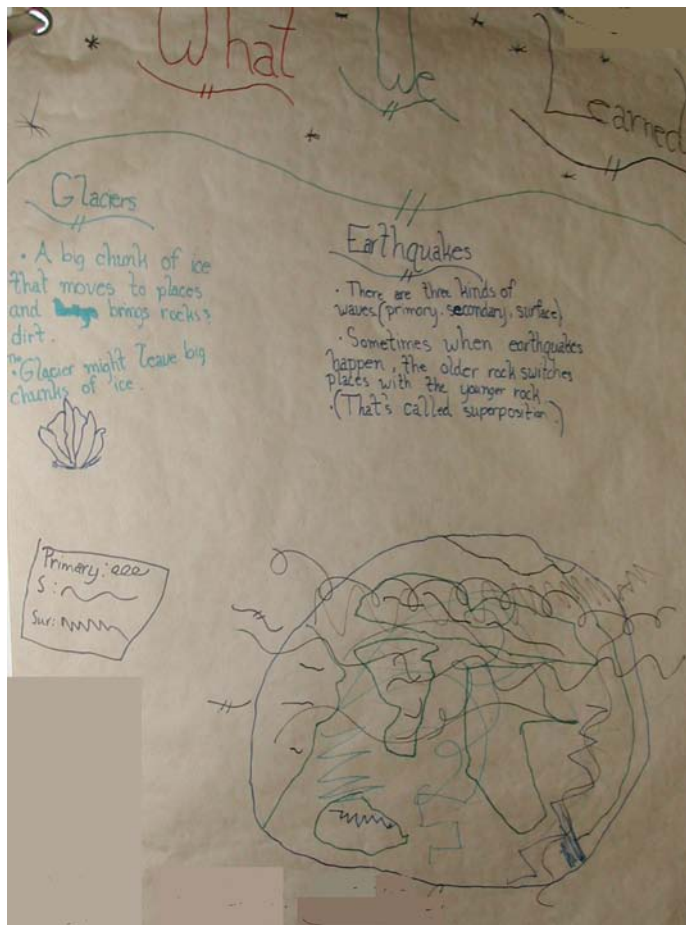 What We Learned
Glaciers
• A big chunk of ice
that moves to places
and brings rocks &
dirt.
The
• Glacier might leave big
chunks of ice.
Earthquakes
• There are three kinds of
waves (primary, secondary, surface)
• Sometimes when earthquakes
happen, the older rock switches
places with the younger rock
• (That's called superposition.)
Primary: eee
S:
Sur: